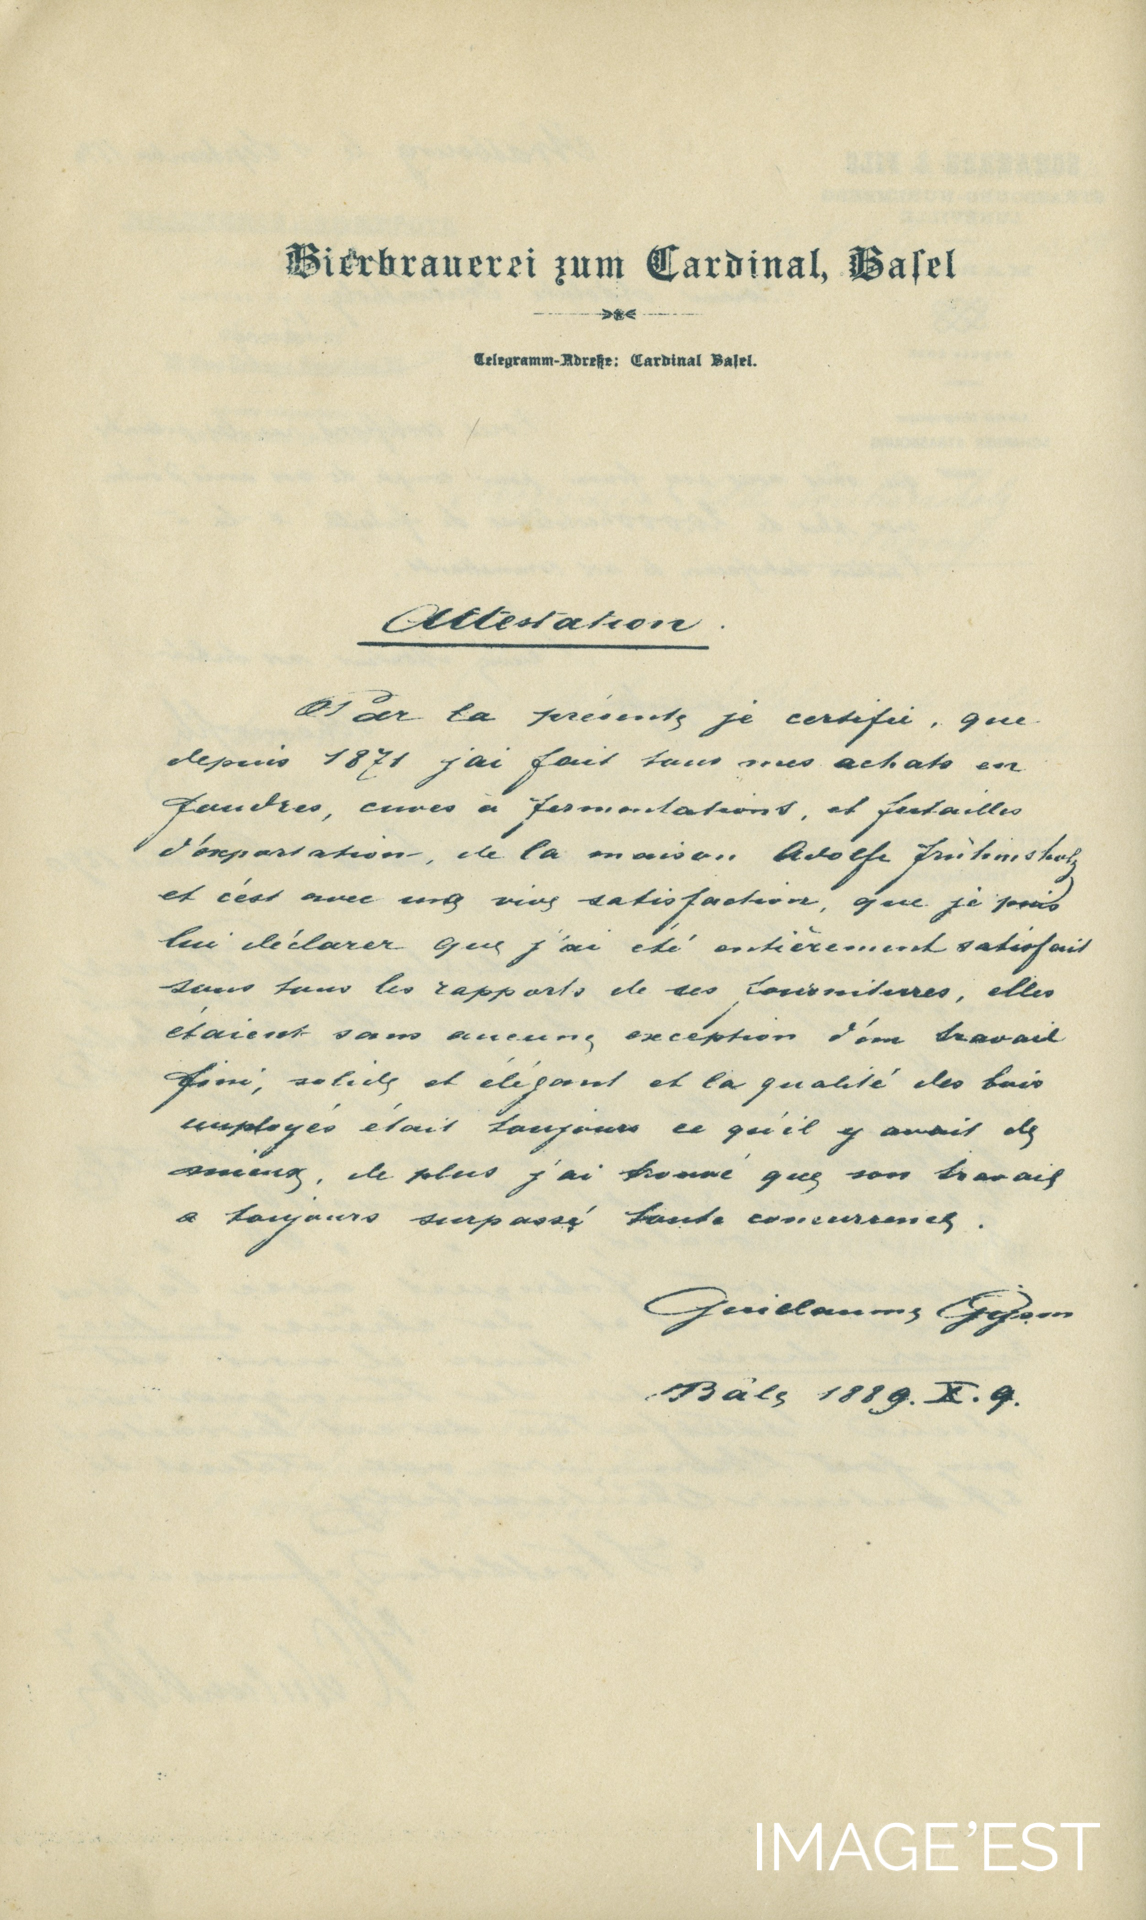 Bierbrauerei zum Cardinal, Basel
Telegramm-Adreße: Cardinal Basel.
Attestation.
Par la présente je certifie, que
depuis 1871 j'ai fait tous mes achats en
foudres, cuves à fermentations, et futailles
d'exportation, de la maison Adolfe Frühinsholz
et c'est avec une vive satisfaction, que je puis
lui déclarer que j'ai été entièrement satisfait
sous tous les rapports de ses fournitures, elles
étaient sans aucune exception d'un travail
fini, solide et élégant et la qualité des bois
employés était toujours ce qu'il y avait de
mieux, de plus j'ai trouvé que son travail
a toujours surpassé toute concurrence.
Guillaume
Bâle 1889. X. 9.
IMAGE'EST